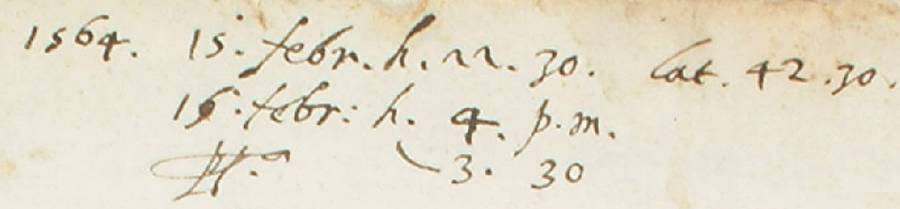 1564. 15. febr. h. 22. 30. lat. 42.30.
16. febr: h. 4. p.m.
3. 30